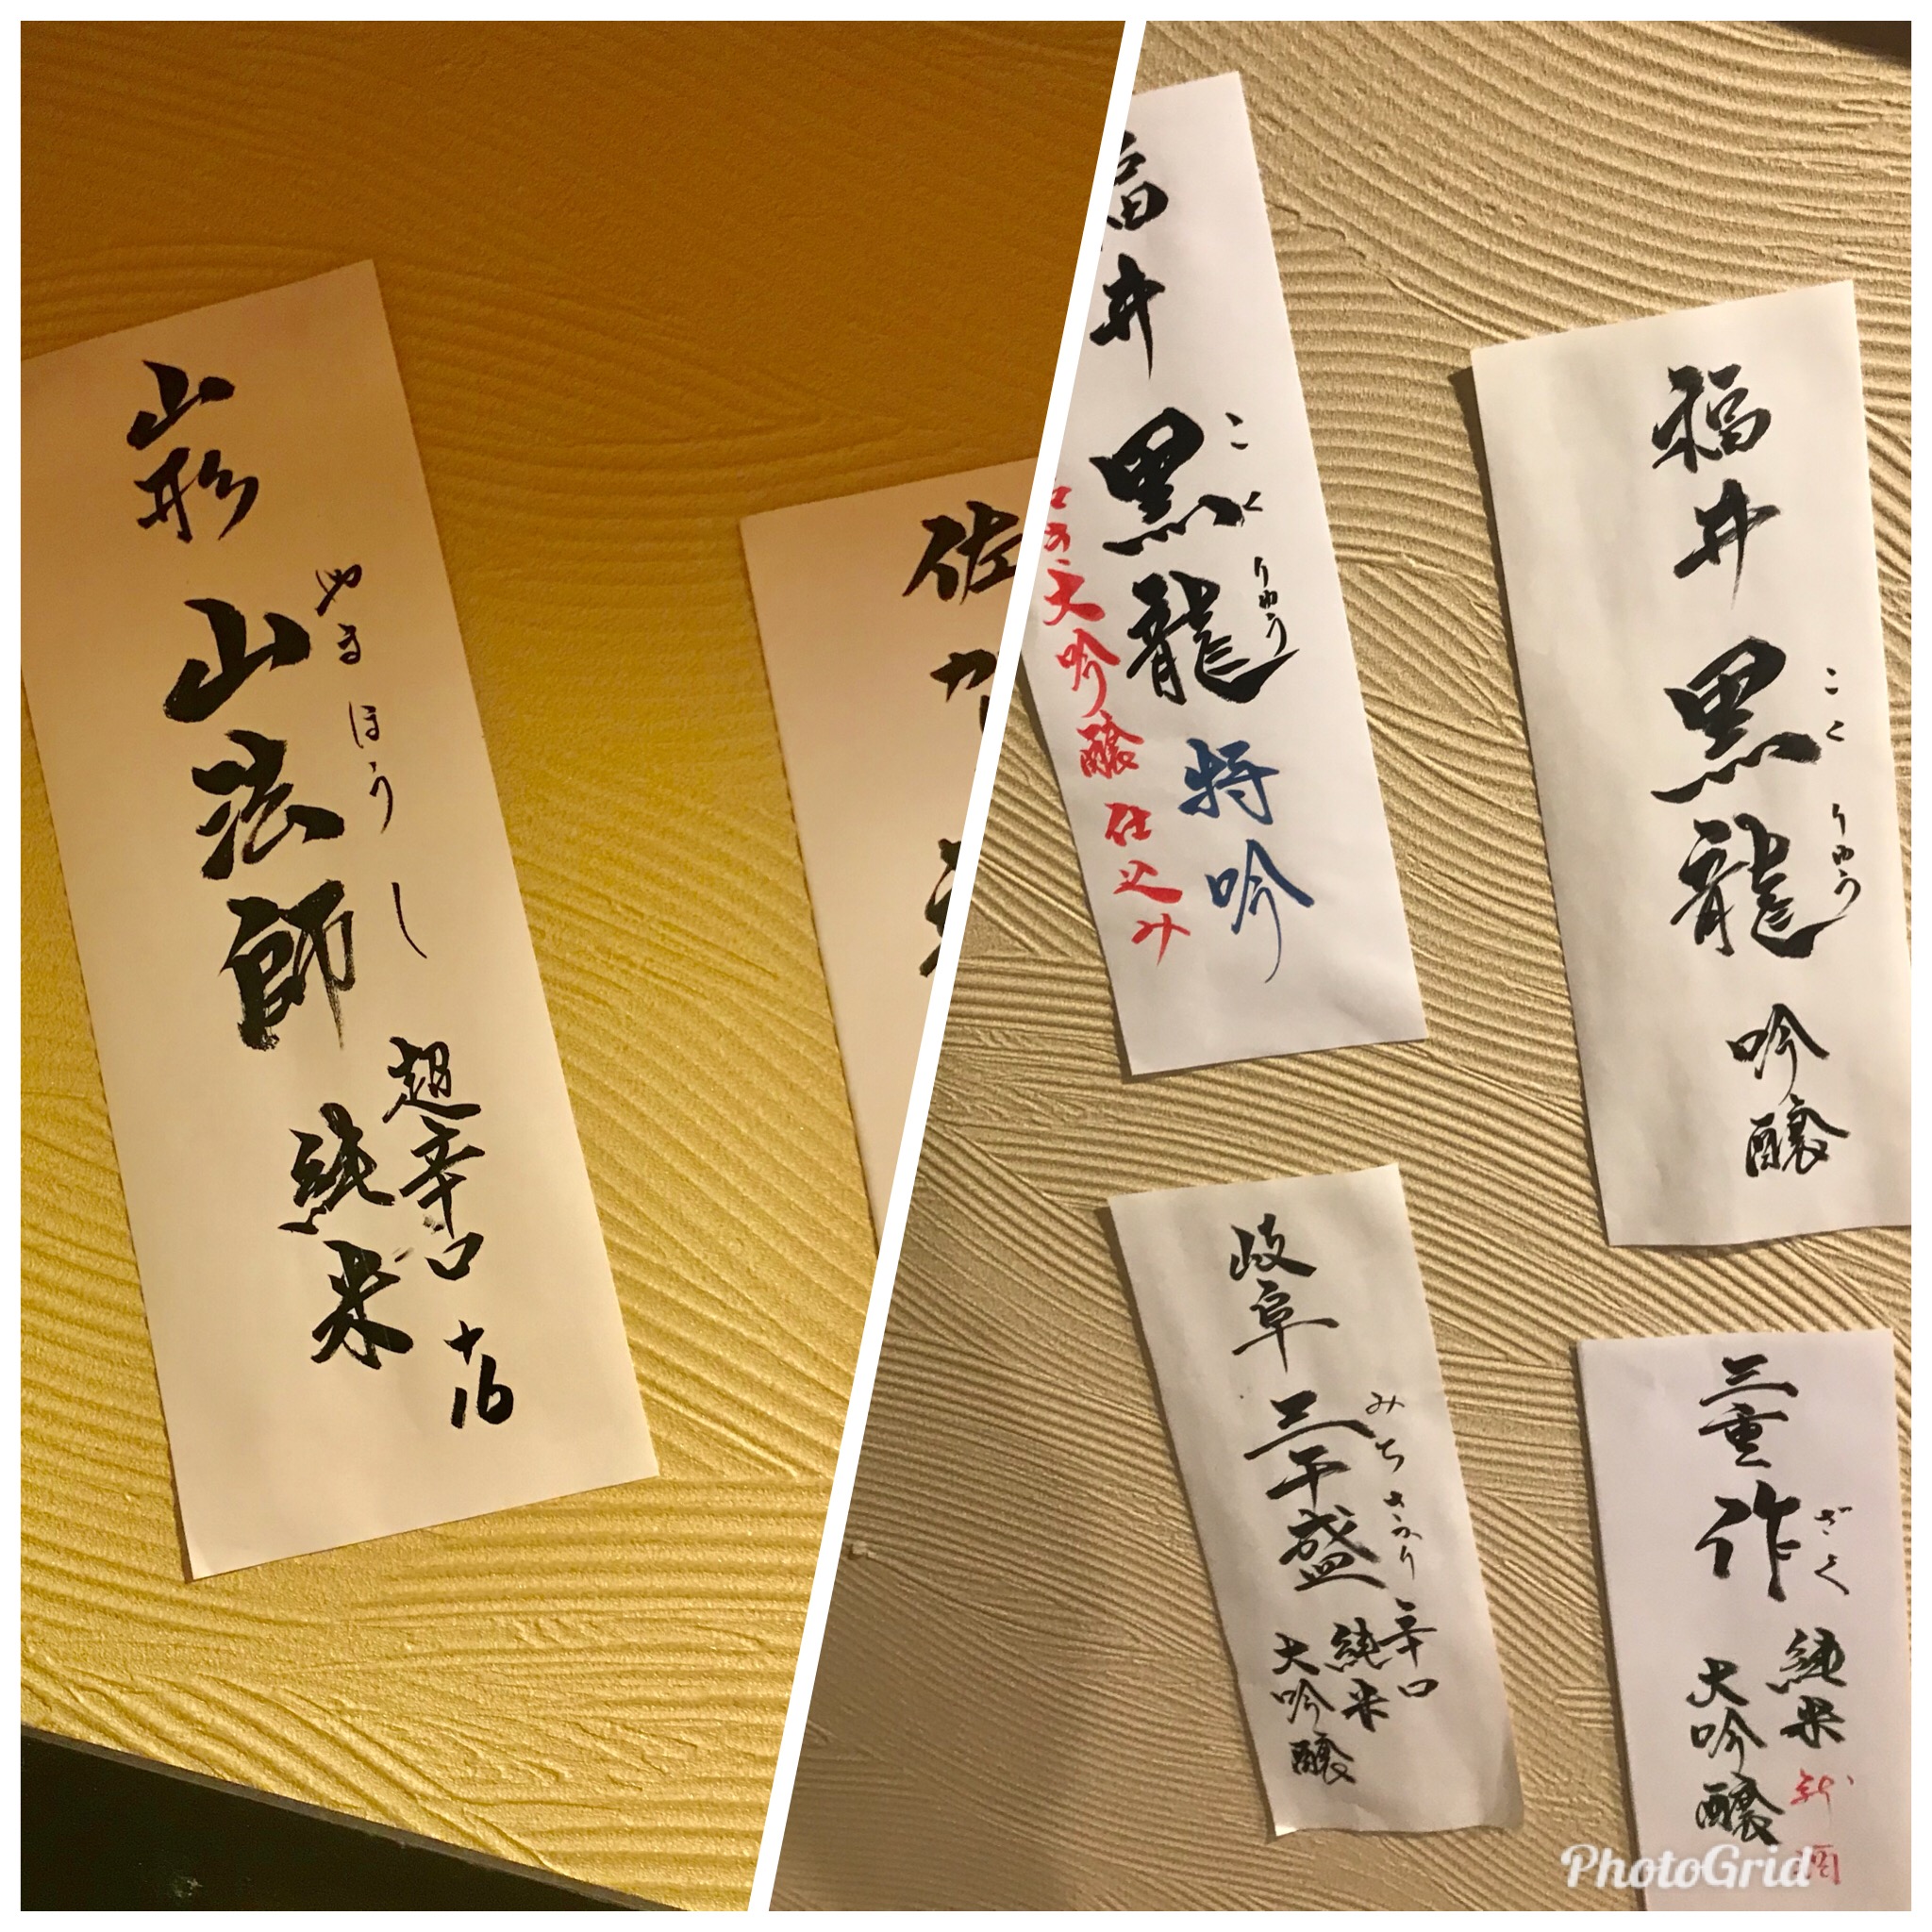 山形
山法師
やまほうし
超辛口
純米
+16
佐
福井
黒龍
こくりゅう
特吟
大吟醸仕込み
福井
黒龍
こくりゅう
吟醸
岐阜
三千盛
みちさかり
辛口
純米
大吟醸
三重
作
ざく
純米
大吟醸
新酒
PhotoGrid